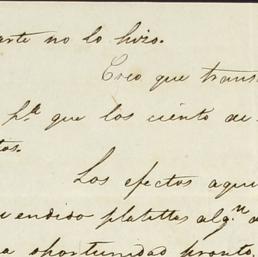 arte no lo hizo.
Creo que trans
pª que los ciento de
tos.
Los efectos aqui
endido platillas alg.ⁿ a
a oportunidad pronto